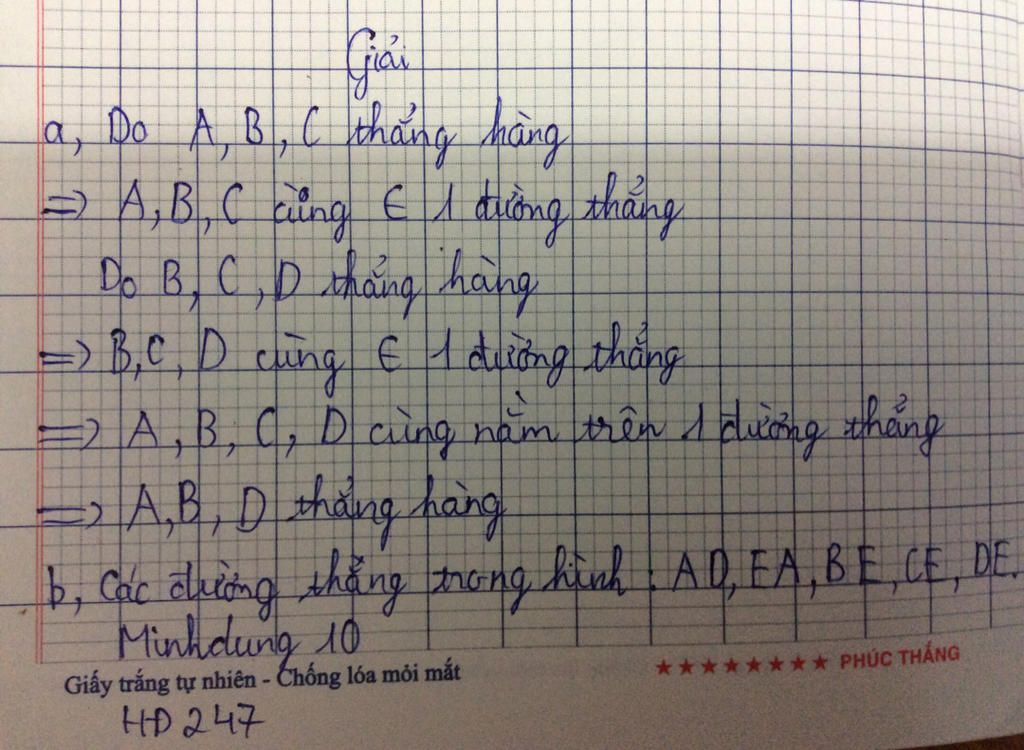 Giải
a, Do A, B, C thẳng hàng
=> A, B, C cùng ∈ 1 đường thẳng
Do B, C, D thẳng hàng
=> B, C, D cùng ∈ 1 đường thẳng
=> A, B, C, D cùng nằm trên 1 đường thẳng
=> A, B, D thẳng hàng
b, Các đường thẳng trong hình : AD, EA, BE, CE, DE.
Minhdung 10
Giấy trắng tự nhiên - Chống lóa mỏi mắt
★★★★★★★★ PHÚC THẮNG
HĐ 247